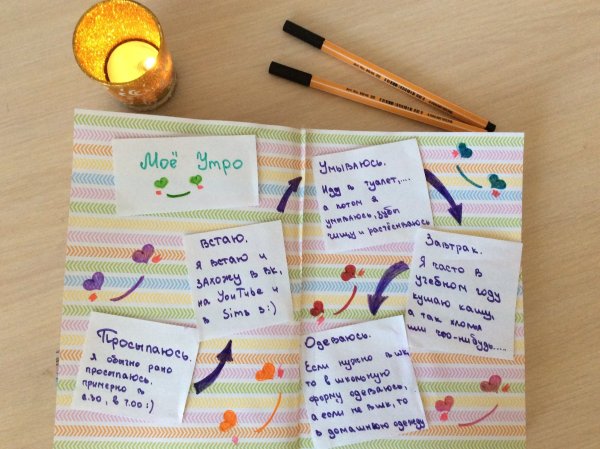 Моё Утро
Просыпаюсь.
Я обычно рано
просыпаюсь,
примерно в
6.30, в 7.00 :)
Встаю.
Я встаю и
захожу в вк,
на YouTube и
в Sims 3 :)
Умываюсь.
Иду в туалет,....
а потом я
умываюсь, зубы
чищу и расчёсываюсь
Завтрак.
Я часто в
учебном году
кушаю кашу,
а так хлопья
или что-нибудь.....
Одеваюсь.
Если нужно в шк,
то в школьную
форму одеваюсь,
а если не в шк, то
в домашнюю одежду